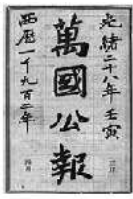 光緒二十八年壬寅
萬國公報
西歷一千九百二年